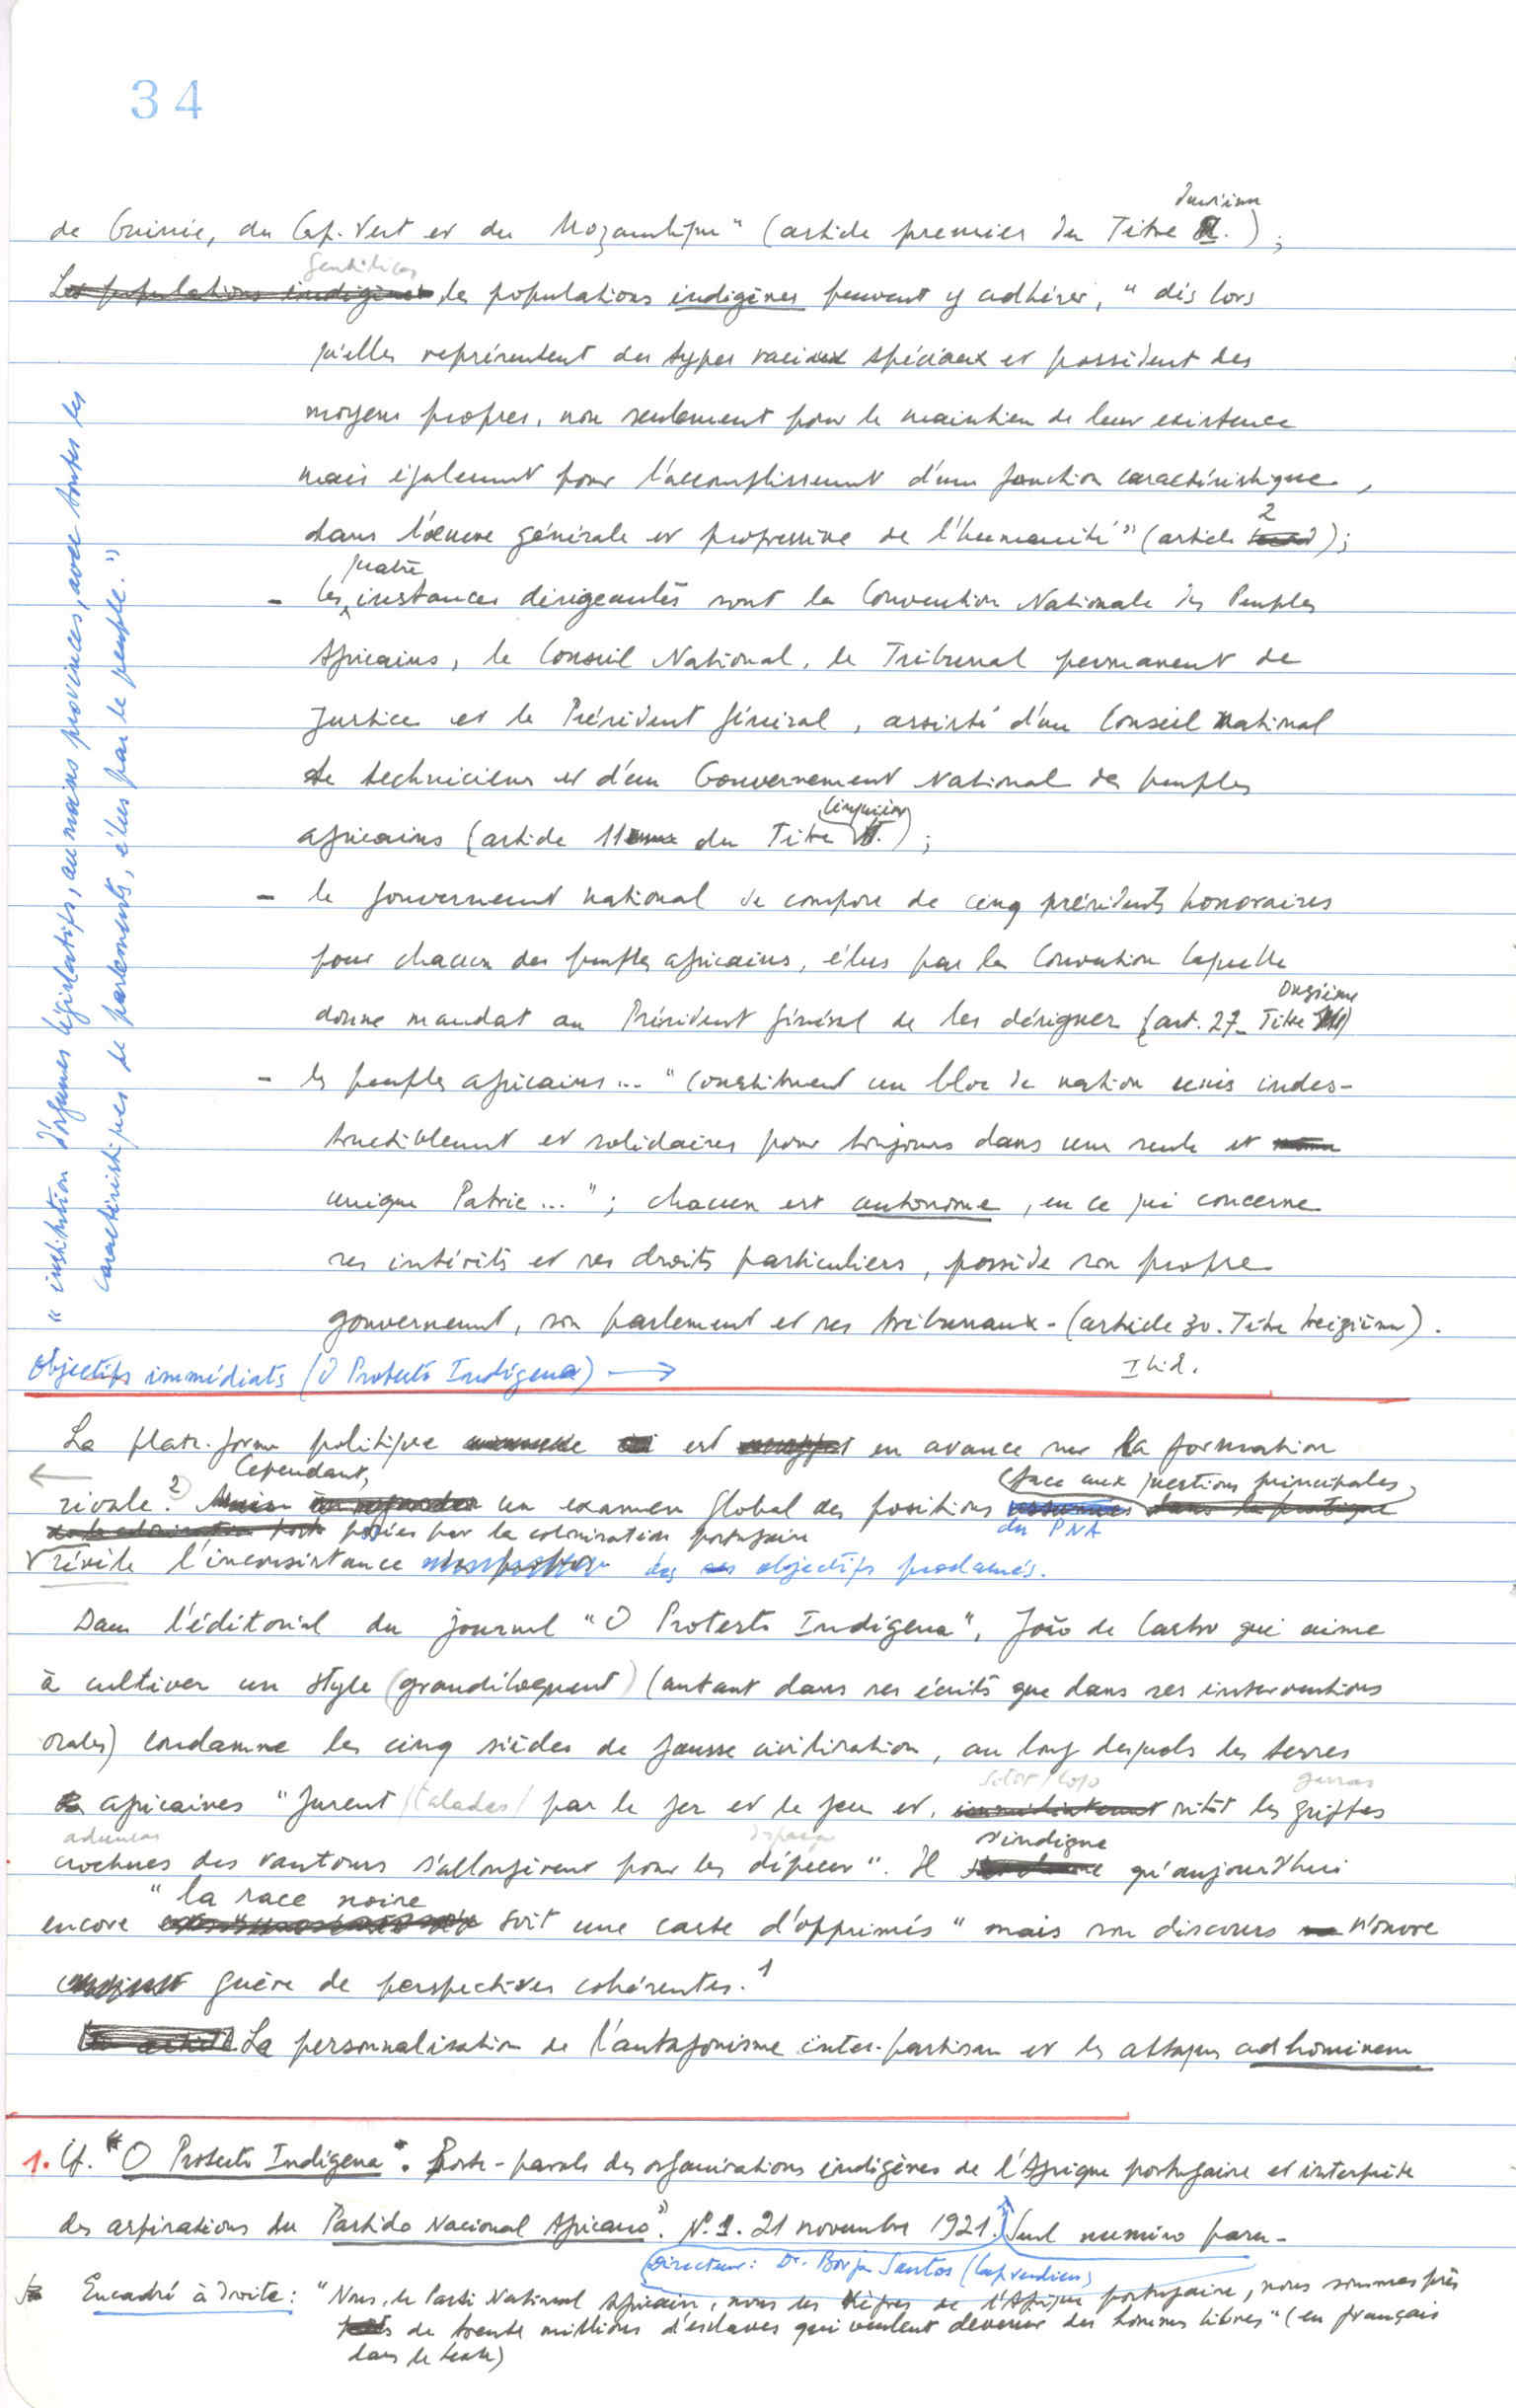 34
deuxième
de Guinée, du Cap. Vert et du Mozambique" (article premier du Titre II.) ;
gentílicas
Les populations indigènes les populations indigènes peuvent y adhérer, "dès lors
qu'elles représentent des types raciaux spéciaux et possèdent des
moyens propres, non seulement pour le maintien de leur existence
mais également pour l'accomplissement d'une fonction caractéristique,
2
dans l'œuvre générale et progressive de l'humanité" (article );
quatre
- les instances dirigeantes sont la Convention Nationale des Peuples
Africains, le Conseil National, le Tribunal permanent de
Justice et le Président général, assisté d'un Conseil national
de techniciens et d'un Gouvernement National des peuples
cinquième
africains (article 11 du Titre V.) ;
- le gouvernement national se compose de cinq présidents honoraires
pour chacun des peuples africains, élus par la Convention laquelle
onzième
donne mandat au Président général de les désigner (art. 27- Titre )
- les peuples africains... "constituent un bloc de nation unis indes-
tructiblement et solidaires pour toujours dans une seule et
unique Patrie..." ; chacun est autonome, en ce qui concerne
ses intérêts et ses droits particuliers, possède son propre
gouvernement, son parlement et ses tribunaux - (article 30. Titre treizième).
Ibid.
"institution d'organes législatifs, au moins provinces, avec toutes les
caractéristiques de parlements, élus par le peuple."
Objectifs immédiats (O Protesto Indígena) →
La plate-forme politique est en avance sur la formation
← Cependant, (face aux questions principales,
rivale.2 un examen global des positions dans la pratique
posées par la colonisation portugaise du PNA
révèle l'inconsistance des objectifs proclamés.
Dans l'éditorial du journal "O Protesto Indígena", João de Castro qui aime
à cultiver un style (grandiloquent) (autant dans ses écrits que dans ses interventions
orales) condamne les cinq siècles de fausse civilisation, au long desquels les terres
garras
africaines "furent /talados/ par le fer et le feu et, immédiatement sitôt les griffes
aduncas s'indigne
crochues des vautours s'allongèrent pour les dépecer". Il qu'aujourd'hui
"la race noire
encore soit une caste d'opprimés" mais son discours n'ouvre
guère de perspectives cohérentes.1
La personnalisation de l'antagonisme inter-partisan et les attaques ad hominem
1. Cf. "O Protesto Indígena". Porte-parole des organisations indigènes de l'Afrique portugaise et interprète
des aspirations du Partido Nacional Africano". N.1. 21 novembre 1921. Seul numéro paru-
Directeur: Dr. Borja Santos (Capverdien)
Encadré à droite: "Nous, le Parti National Africain, nous les Nègres de l'Afrique portugaise, nous sommes près
de trente millions d'esclaves qui veulent devenir des hommes libres" (en français
dans le texte)